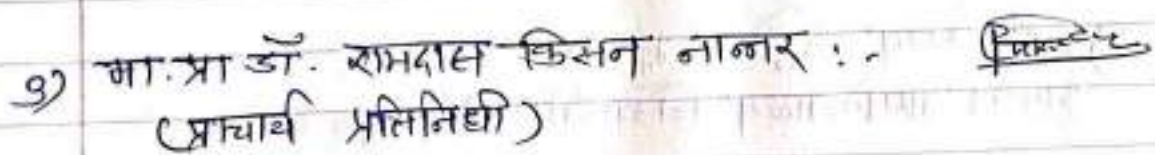 १) मा. प्रा डॉ. रामदास किसन नान्नर :-
(प्राचार्य प्रतिनिधी)